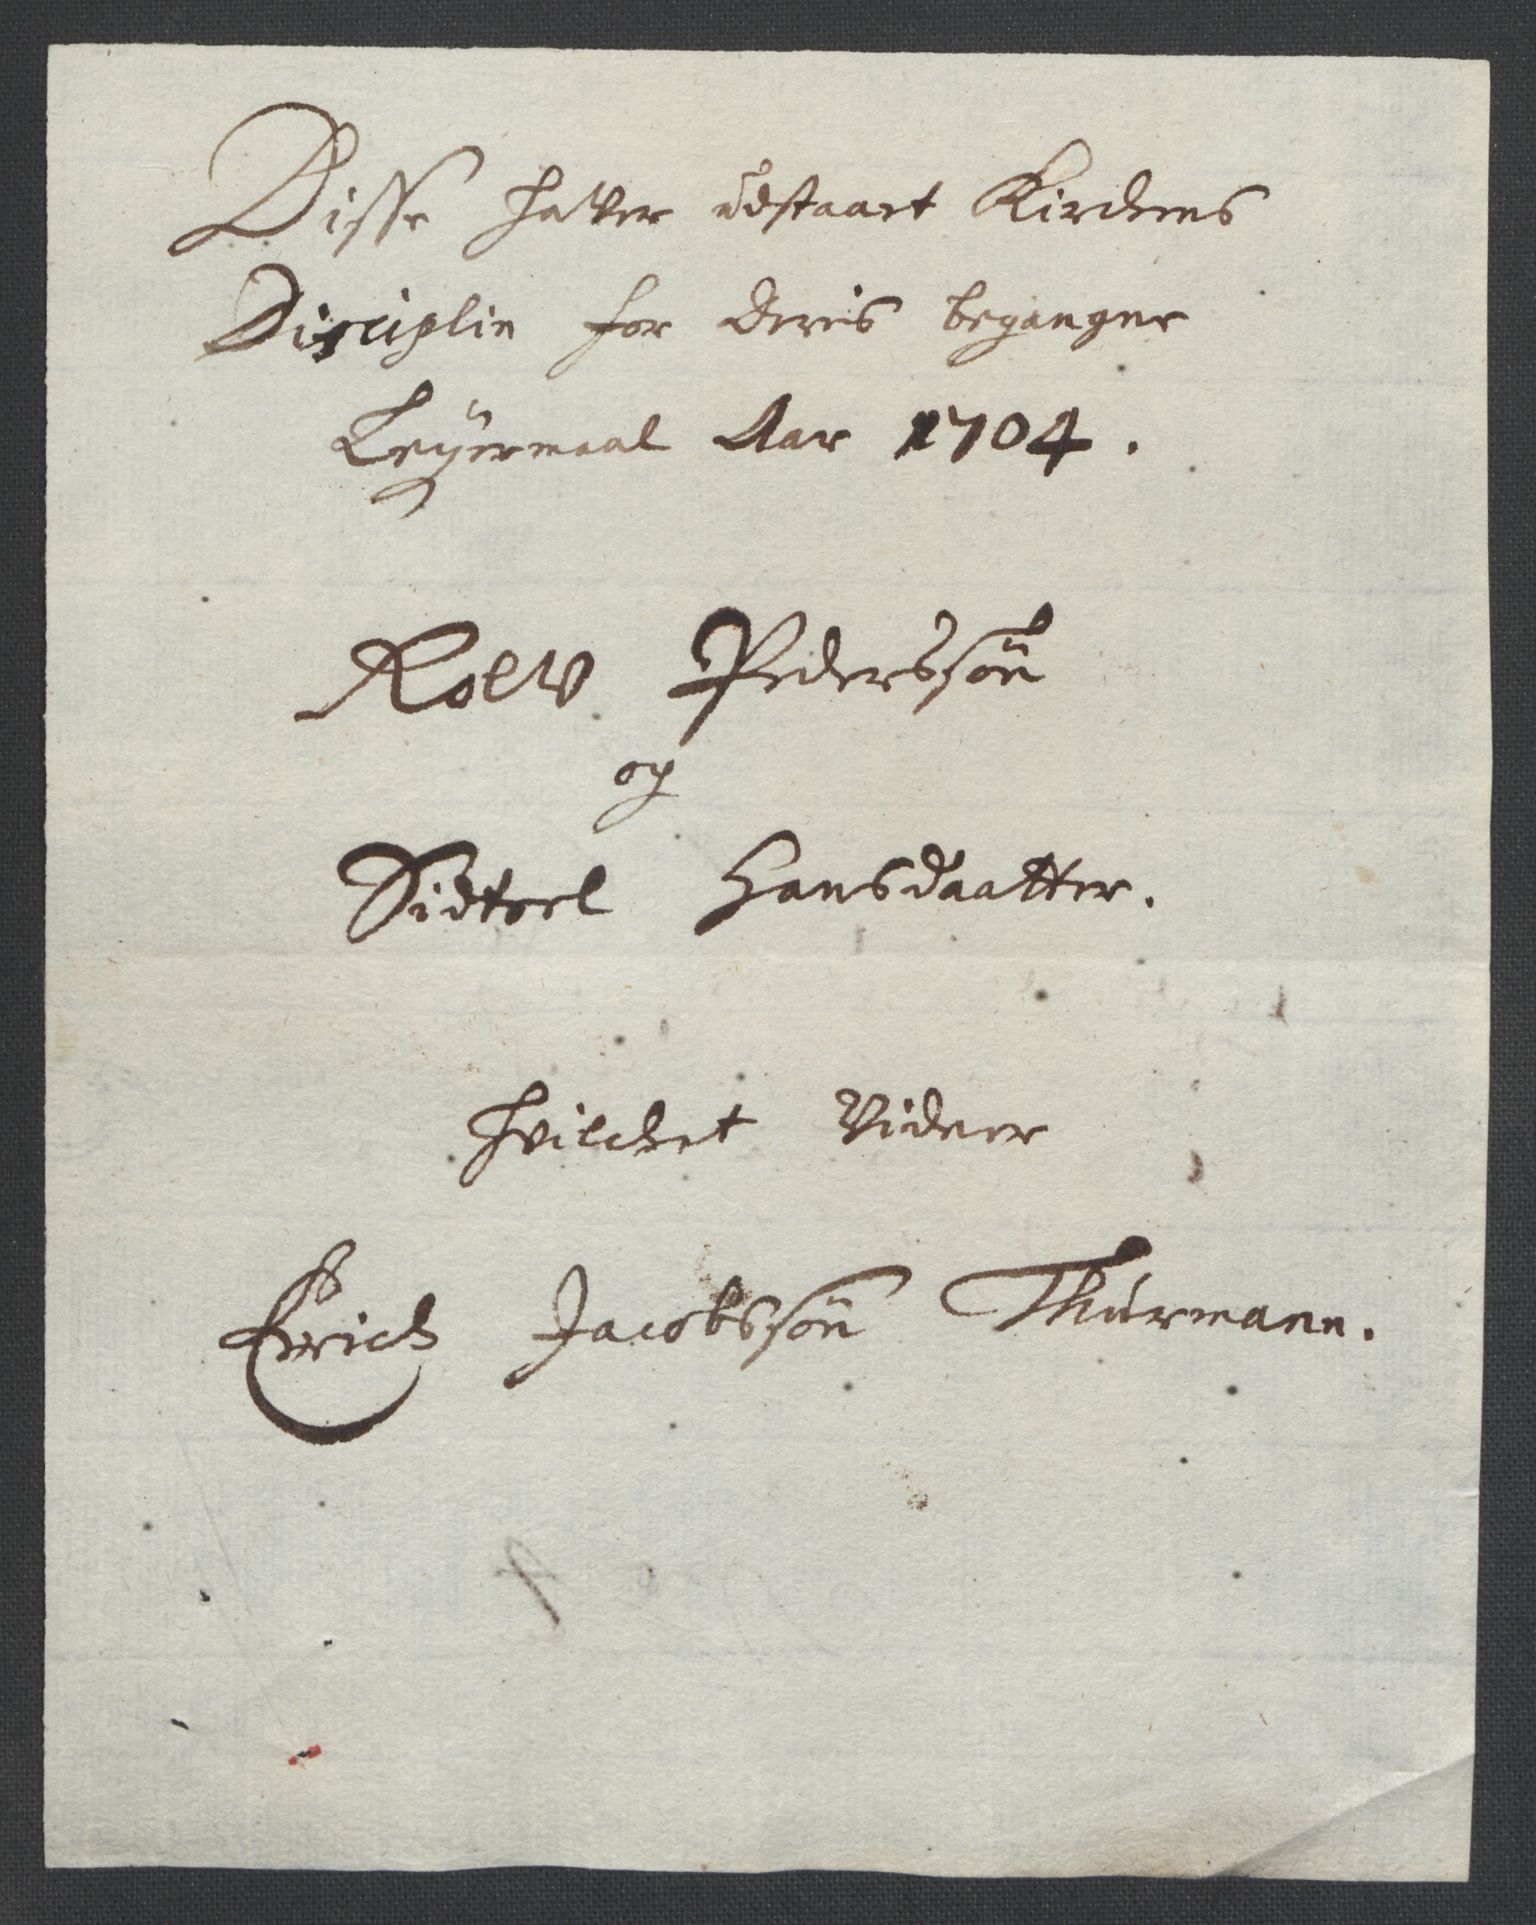 Disse hafver udstaaet Kirckens
Disciplin for deris begangne
Leÿermaal Aar 1704.
Rolv Pederssøn
og
Sidtzel Hansdaatter.
hvilcket Vidner
Erich Jacobssøn Thurmann.